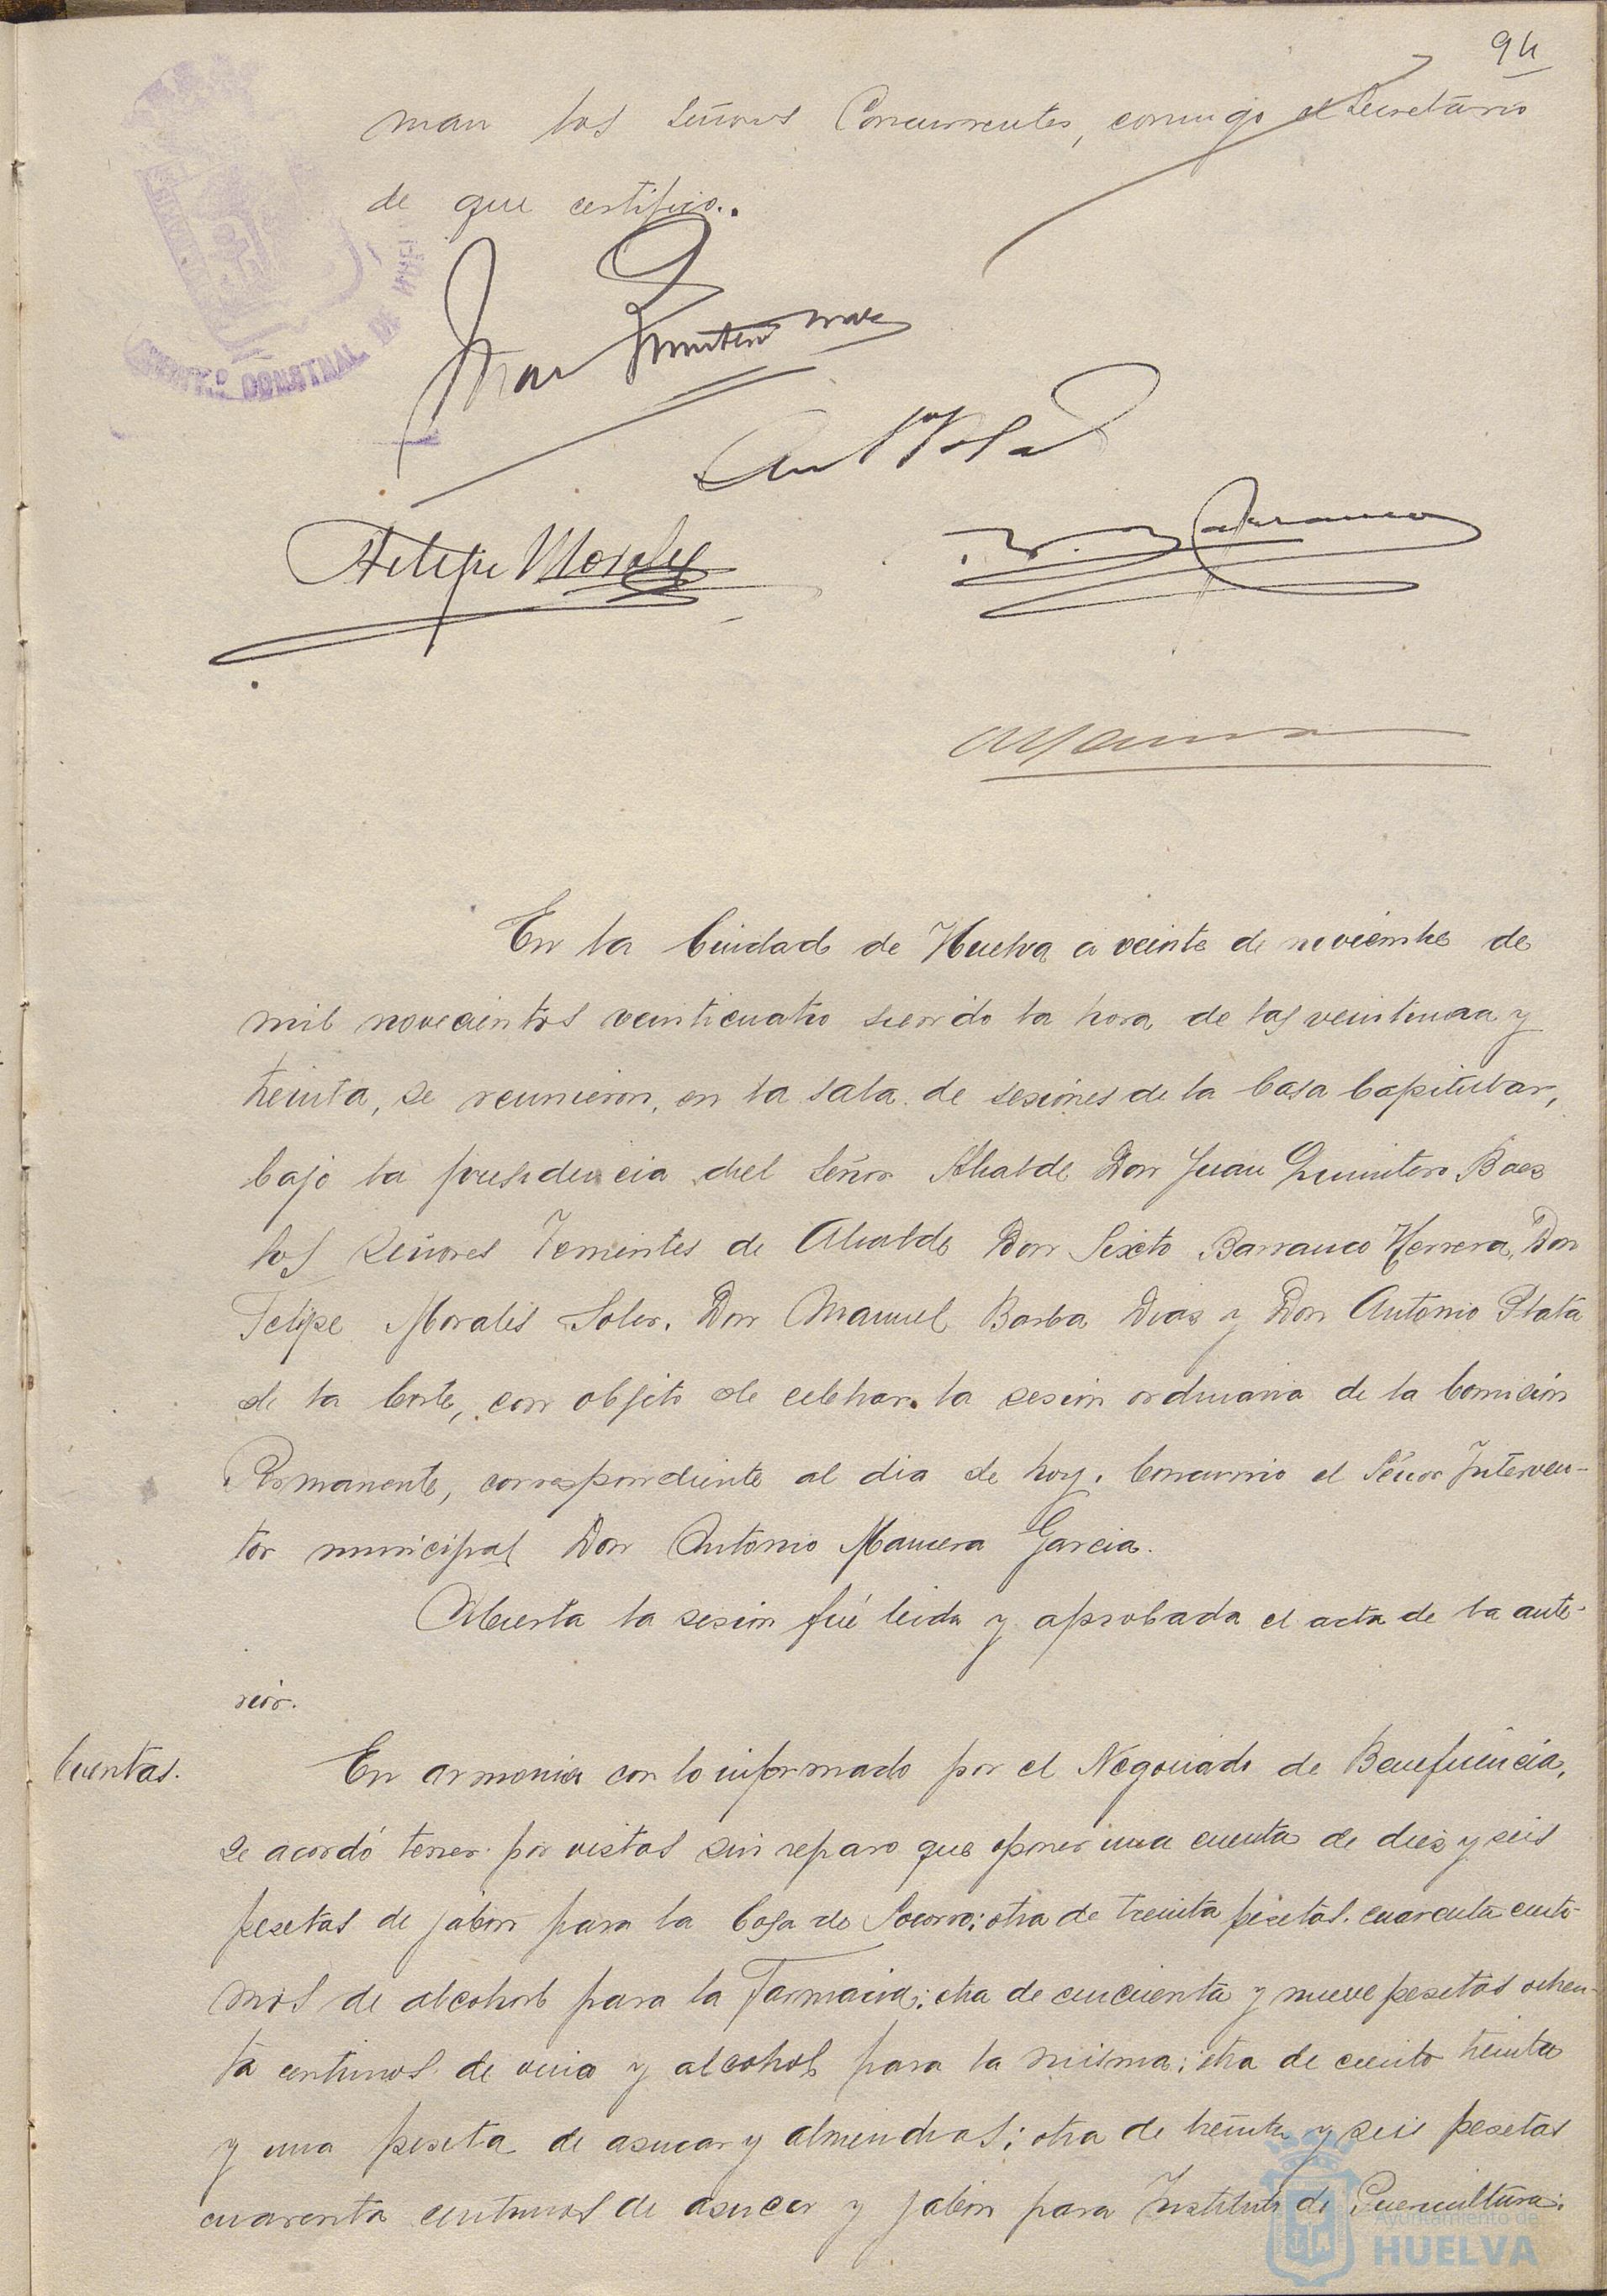 94
man los Señores Concurrentes, conmigo el Secretario
de que certifico..
AYUNT.O CONSTNAL DE HUEL
Juan Quintero Baez
Ant Plata
Felipe Morales
Barranco
En la Ciudad de Huelva a veinte de noviembre de
mil novecientos veinticuatro siendo la hora de las veintiuna y
treinta, se reunieron, en la sala de sesiones de la Casa Capitular,
bajo la presidencia del Señor Alcalde Don Juan Quintero Baez
los Señores Tenientes de Alcalde Don Sixto Barranco Herrera, Don
Felipe Morales Soler, Don Manuel Barba Diaz y Don Antonio Plata
de la Corte, con objeto de celebrar la sesion ordinaria de la Comisión
Permanente, correspondiente al dia de hoy. Concurrio el Señor Interven-
tor municipal Don Antonio Mancera Garcia.
Abierta la sesion fué leida y aprobada el acta de la ante-
rior.
Cuentas.
En armonia con lo informado por el Negociado de Beneficencia,
se acordó tener por vistas sin reparo que oponer una cuenta de diez y seis
pesetas de jabon para la Casa de Socorro; otra de treinta pesetas cuarenta centi-
mos de alcohol para la Farmacia; otra de cincuenta y nueve pesetas ochen-
ta centimos de vino y alcohol para la misma; otra de ciento treinta
y una peseta de azucar y almendras; otra de treinta y seis pesetas
cuarenta centimos de azucar y jabon para Instituto de Puericultura;
Ayuntamiento de
HUELVA